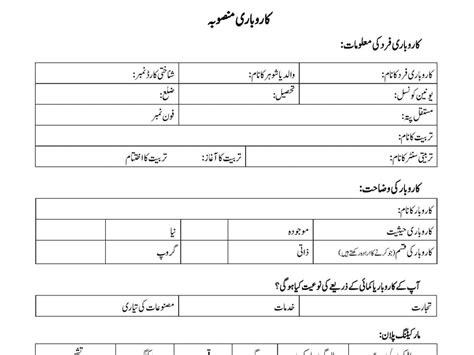 کاروباری منصوبہ
کاروباری فرد کی معلومات:
کاروباری فرد کا نام: والد یا شوہر کا نام: شناختی کارڈ نمبر:
یونین کونسل: تحصیل: ضلع:
مستقل پتہ: فون نمبر
تربیت کا نام:
تربیتی سنٹر کا نام: تربیت کا آغاز: تربیت کا اختتام
کاروبار کی وضاحت:
کاروبار کا نام:
کاروباری حیثیت موجودہ نیا
کاروبار کی قسم (جو کرنے کا ارادہ رکھتے ہیں) ذاتی گروپ
آپ کے کاروبار یا کمائی کے ذریعے کی نوعیت کیا ہو گی؟
تجارت خدمات مصنوعات کی تیاری
مارکیٹنگ پلان: